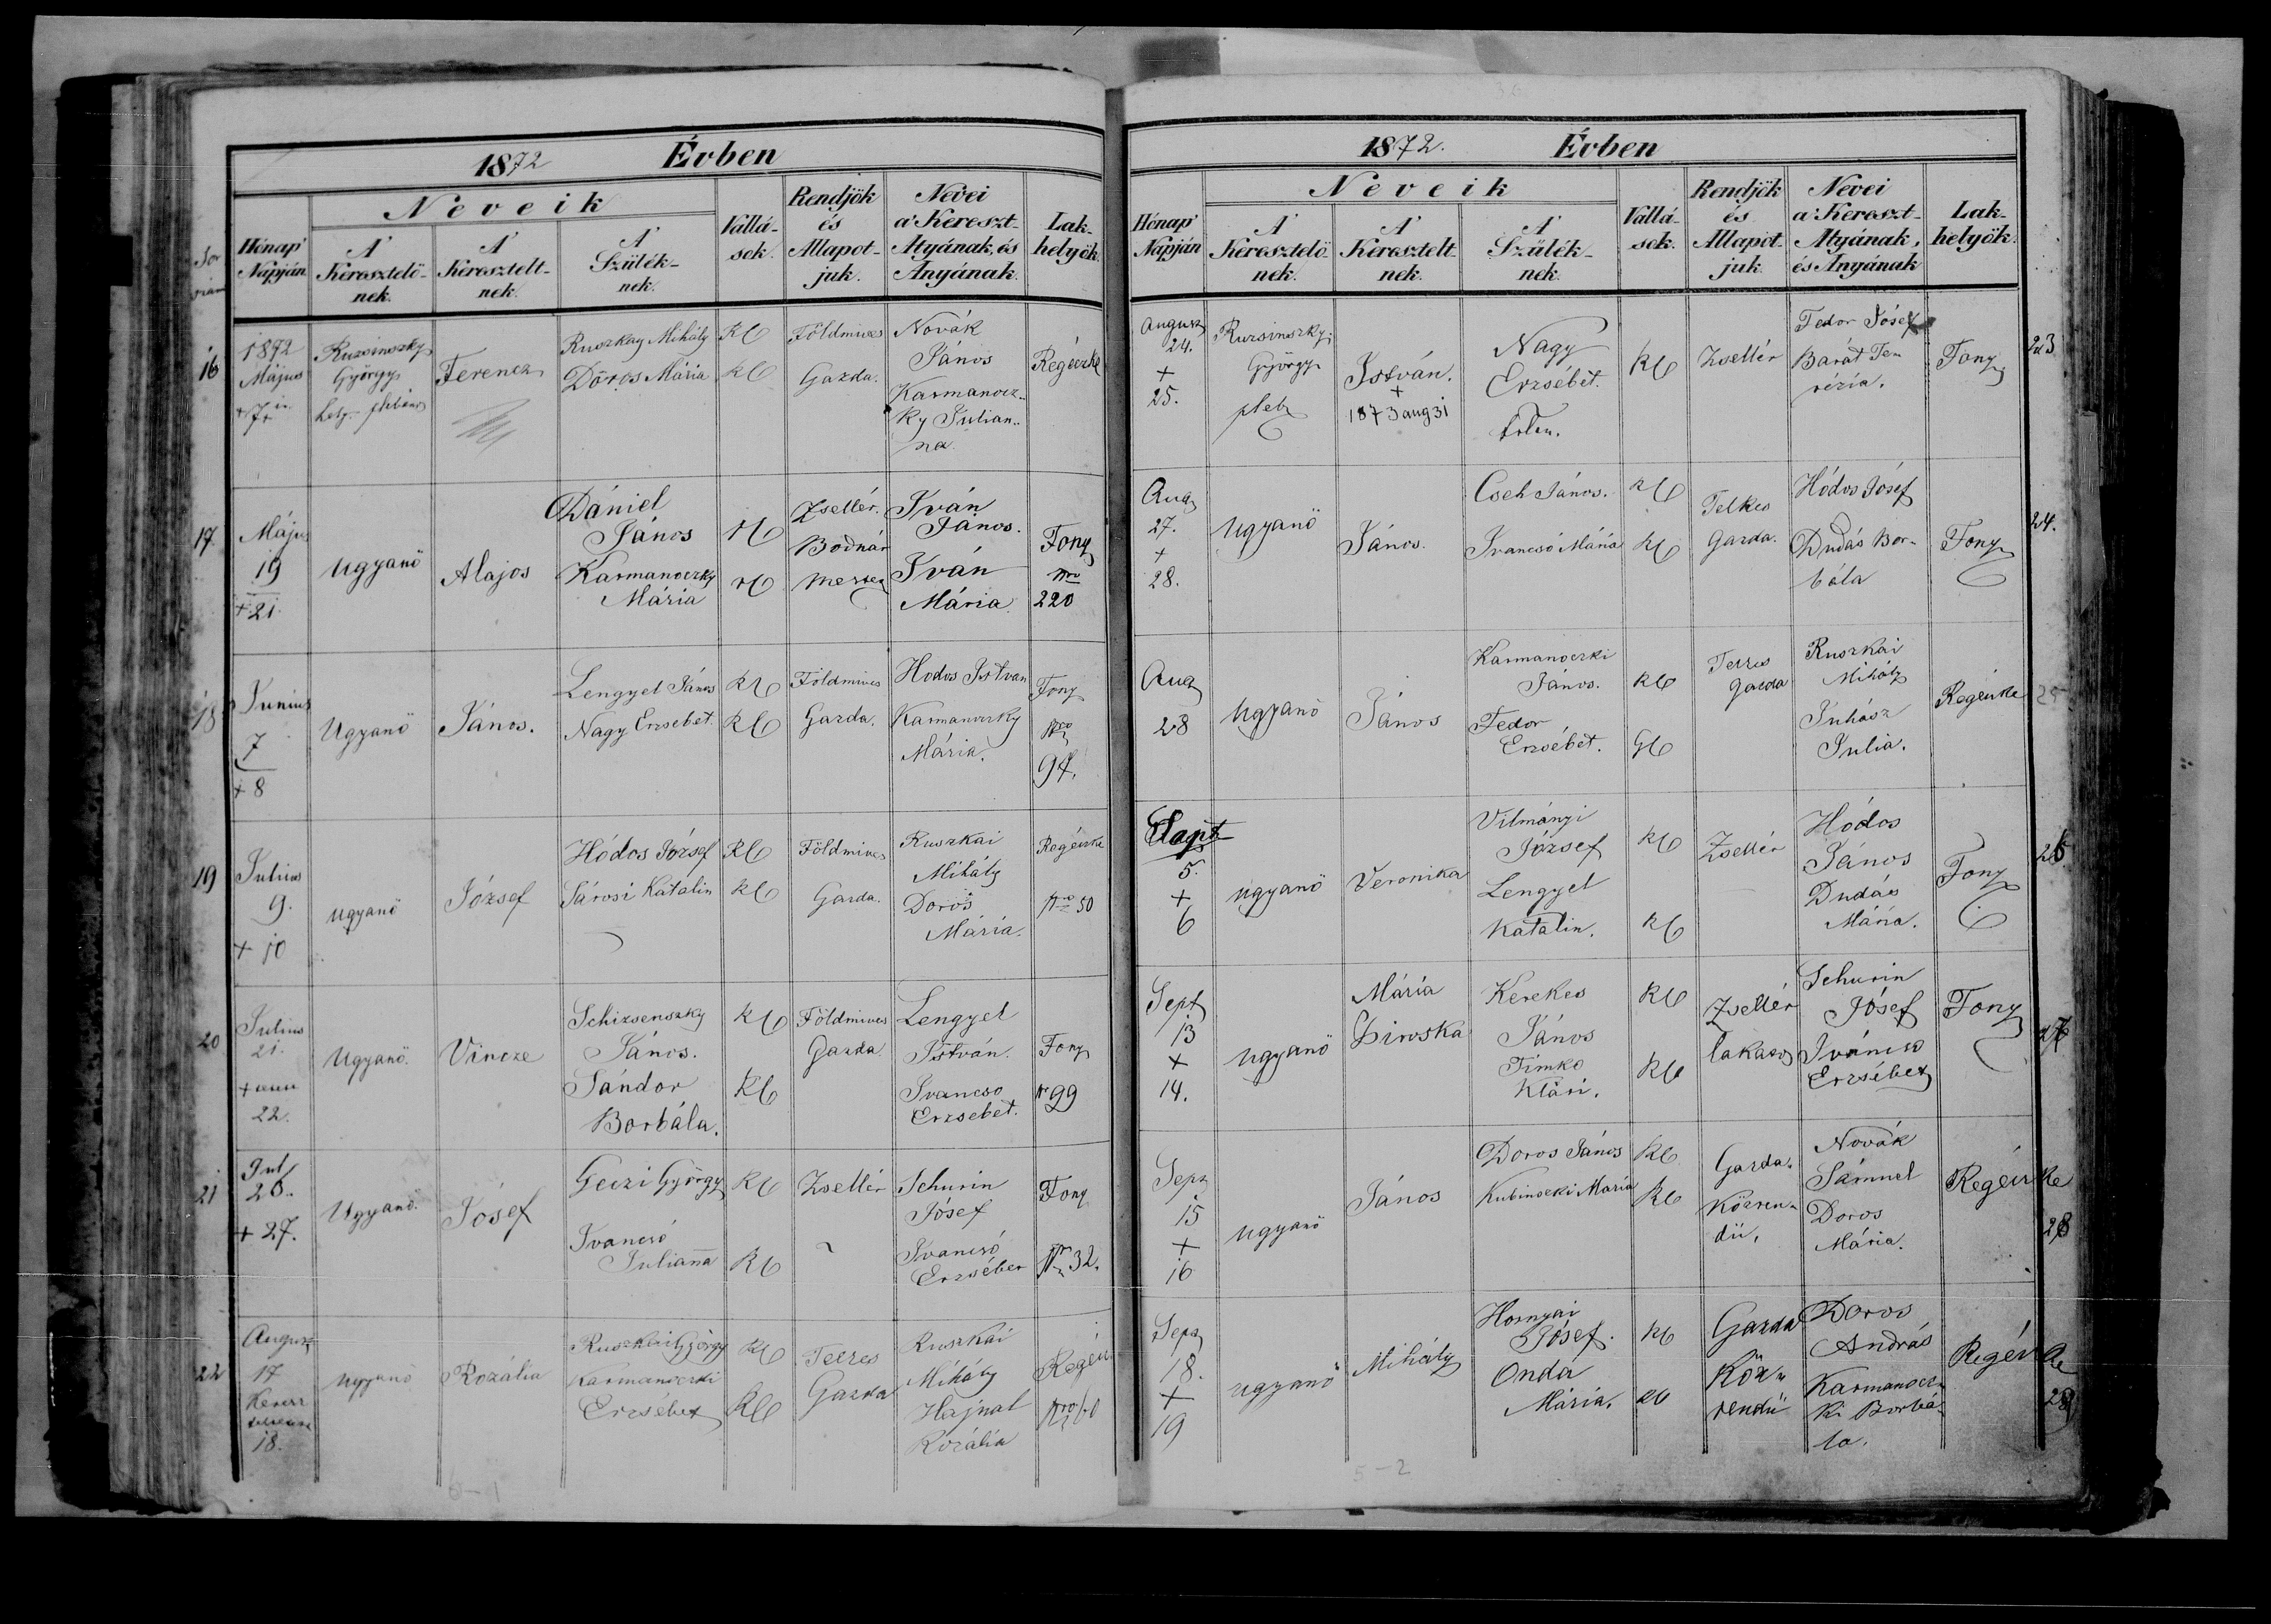 1872 Évben
Sor
Hónap' Napján
Neveik
A' Keresztelö-nek.
A' Keresztelt-nek.
A' Szülék-nek.
Vallá-sok.
Rendjök és Allapot-juk.
Nevei a' Kereszt-Atyának, és Anyának.
Lak-helyök.
16
1872
Május
+ 7
Ruzsinszky
György
Ferencz
Ruszkay Mihály
Doros Mária
RC
RC
Földmives
Gazda.
Novák
János
Karmanocz-
ky Julian-
na
Regéczke
17.
Május
19
+ 21.
Ugyanö
Alajos
Dániel
János
Karmanoczky
Mária
RC
RC
Zsellér.
Bodnár
mester
Iván
János.
Iván
Mária
Fony
Nro
220
18
Junius
7
+ 8
Ugyanö
János.
Lengyel János
Nagy Erzsebet.
RC
RC
Földmives
Gazda.
Hodos Istvan
Karmanoczky
Mária.
Fony
Nro
94.
19
Julius
9.
+ 10
Ugyanö
József
Hódos József
Sárosi Katalin
RC
RC
Földmives
Gazda.
Ruszkai
Mihály
Doros
Mária.
Regéczke
Nro 50
20
Julius
21.
+
22.
Ugyanö.
Vincze
Schizsenszky
János.
Sándor
Borbála.
RC
RC
Földmives
Gazda.
Lengyel
István.
Ivancso
Erzsebet.
Fony
Nr 99
21
Jul
26.
+ 27.
Ugyanö.
Jósef
Geczi György
Ivancsó
Julianna
RC
RC
Zsellér
Schurin
Jósef
Ivancsó
Erzsébet
Fony
Nr 32.
22
August
17
Kereszt
18.
Ugyanö
Rozália
Ruszkai György
Karmanoczki
Erzsébet
RC
RC
Telkes
Gazda
Ruszkai
Mihály
Hajnal
Rozália
Regécz
6-1
1872. Évben
Hónap' Napján
Neveik
A' Keresztelö-nek.
A' Keresztelt-nek.
A' Szülék-nek.
Vallá-sok.
Rendjök és Allapot-juk.
Nevei a' Kereszt-Atyának, és Anyának
Lak-helyök.
August
24.
+
25.
Ruzsinszky
György
pleb
István.
+
1873 aug 31
Nagy
Erzsébet.
RC
Zsellér
Fedor Jósef
Barát Te-
rézia.
Fony
23
Aug
27.
+
28.
Ugyanö
János.
Cseh János.
Ivancsó Mária
RC
RC
Telkes
Gazda.
Hódos Jósef
Dudás Bor-
bála
Fony
24.
Aug
28
Ugyanö
János
Karmanoczki
János.
Fedor
Erzsébet.
RC
GC
Telkes
Gazda
Ruszkai
Mihály
Juhász
Julia.
Regéczke
25
Sept
5.
+
6
Ugyanö
Veronika
Vilmányi
József
Lengyel
Katalin.
RC
RC
Zsellér
Hódos
János
Dudás
Mária.
Fony
26
Sept
13
+
14.
Ugyanö
Mária
Piroska
Kerekes
János
Timko
Klári.
RC
RC
Zsellér
lakatos
Schurin
Jósef
Iváncso
Erzsébet
Fony
27
Sept
15
+
16
Ugyanö
János
Doros János
Kubinczki Maria
RC
RC
Gazda.
Közren-
dü.
Novák
Sámuel
Doros
Mária.
Regéczke
28
Sept
18.
+
19
Ugyanö
Mihály
Hornyai
Jósef.
Onda
Mária.
RC
RC
Gazda
Köz-
rendü
Doros
András
Karmanocz-
ki Borbá-
la.
5-2